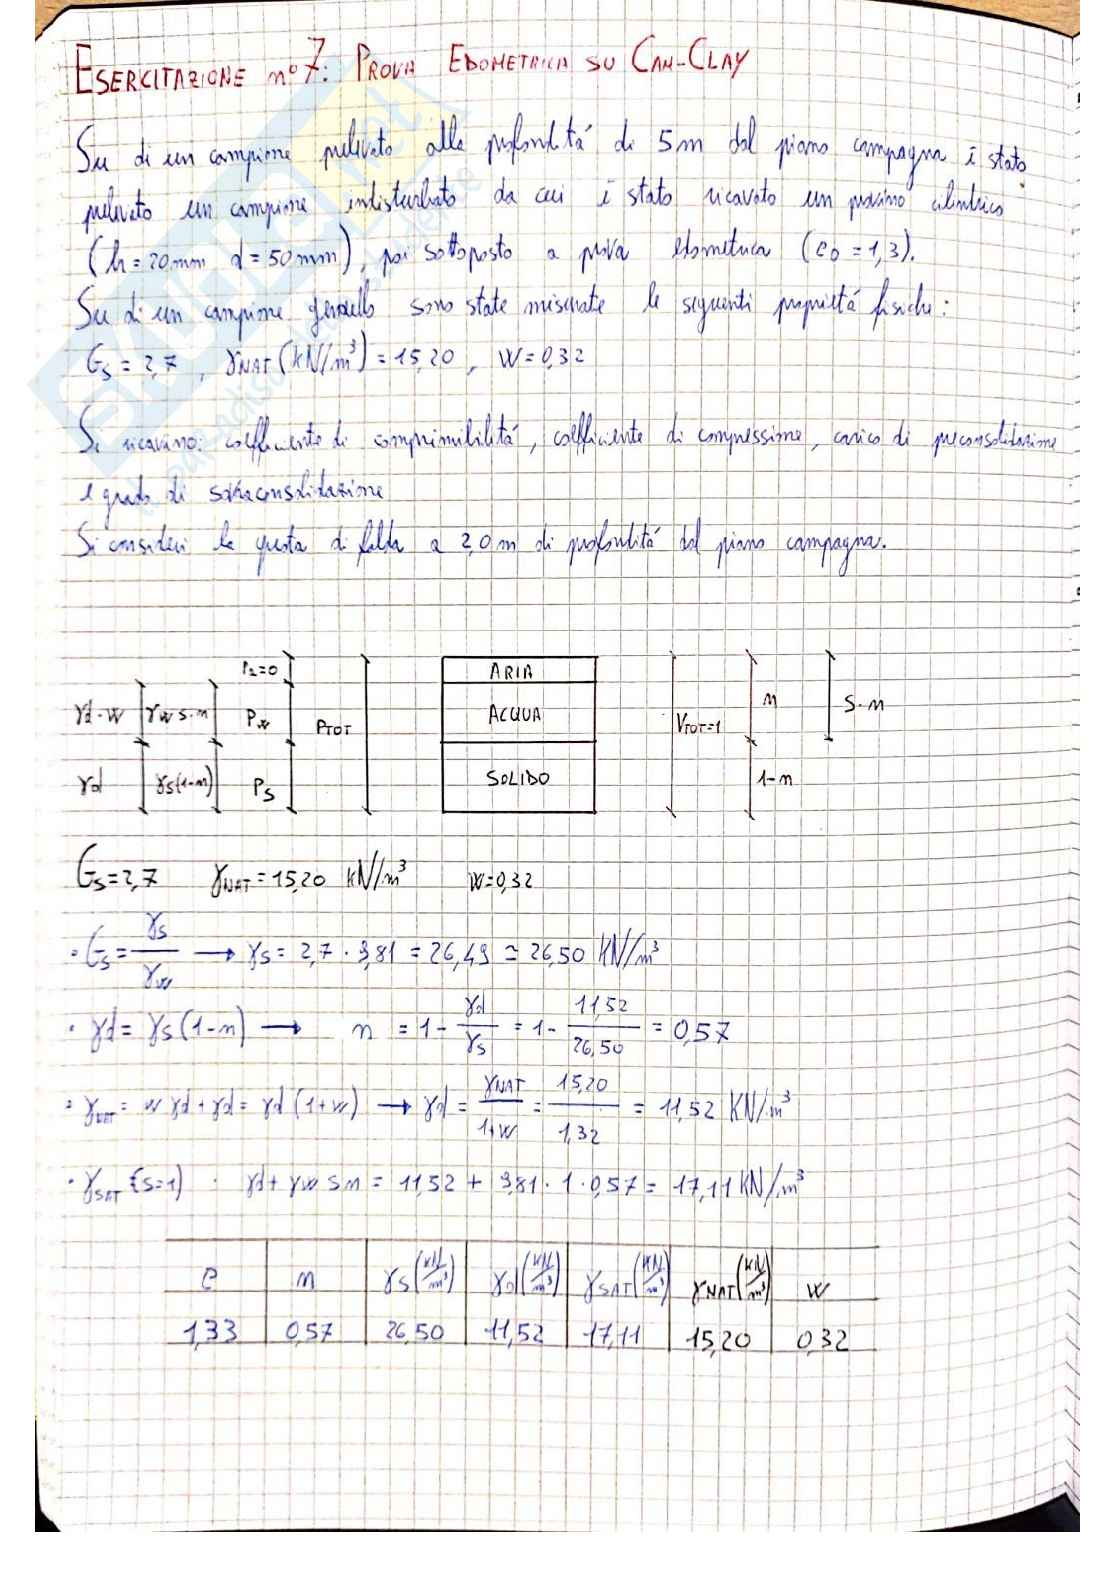 ESERCITAZIONE n° 7: PROVA EDOMETRICA SU CAM-CLAY
Su di un campione prelevato alla profondità di 5m dal piano campagna è stato
prelevato un campione indisturbato da cui è stato ricavato un provino cilindrico
(h=20mm d=50mm), poi sottoposto a prova edometrica (e0=1,3).
Su di un campione gemello sono state misurate le seguenti proprietà fisiche:
Gs = 2,7 , γNAT (kN/m³) = 15,20 , W = 0,32
Si ricavino: coefficiente di comprimibilità, coefficiente di compressione, carico di preconsolidazione
e grado di sovraconsolidazione
Si consideri la quota di falda a 2,0 m di profondità dal piano campagna.
P2=0 ARIA
γd·W γW S·n PW PTOT ACQUA VTOT=1 n S·n
γd γS(1-n) PS SOLIDO 1-n
Gs=2,7 γNAT=15,20 kN/m³ W=0,32
· Gs = γS/γW → γS = 2,7 · 9,81 = 26,49 ≃ 26,50 KN/m³
· γd = γS(1-n) → n = 1 - γd/γS = 1 - 11,52/26,50 = 0,57
· γNAT = W γd + γd = γd (1+W) → γd = γNAT/1+W = 15,20/1,32 = 11,52 KN/m³
· γSAT (S=1) · γd + γW S n = 11,52 + 9,81 · 1 · 0,57 = 17,11 KN/m³
e n γS (kN/m³) γd (kN/m³) γSAT (KN/m³) γNAT (KN/m³) W
1,33 0,57 26,50 11,52 17,11 15,20 0,32